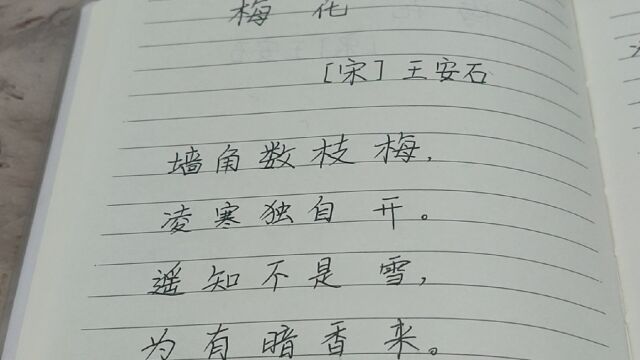 梅花
[宋]王安石
墙角数枝梅，
凌寒独自开。
遥知不是雪，
为有暗香来。